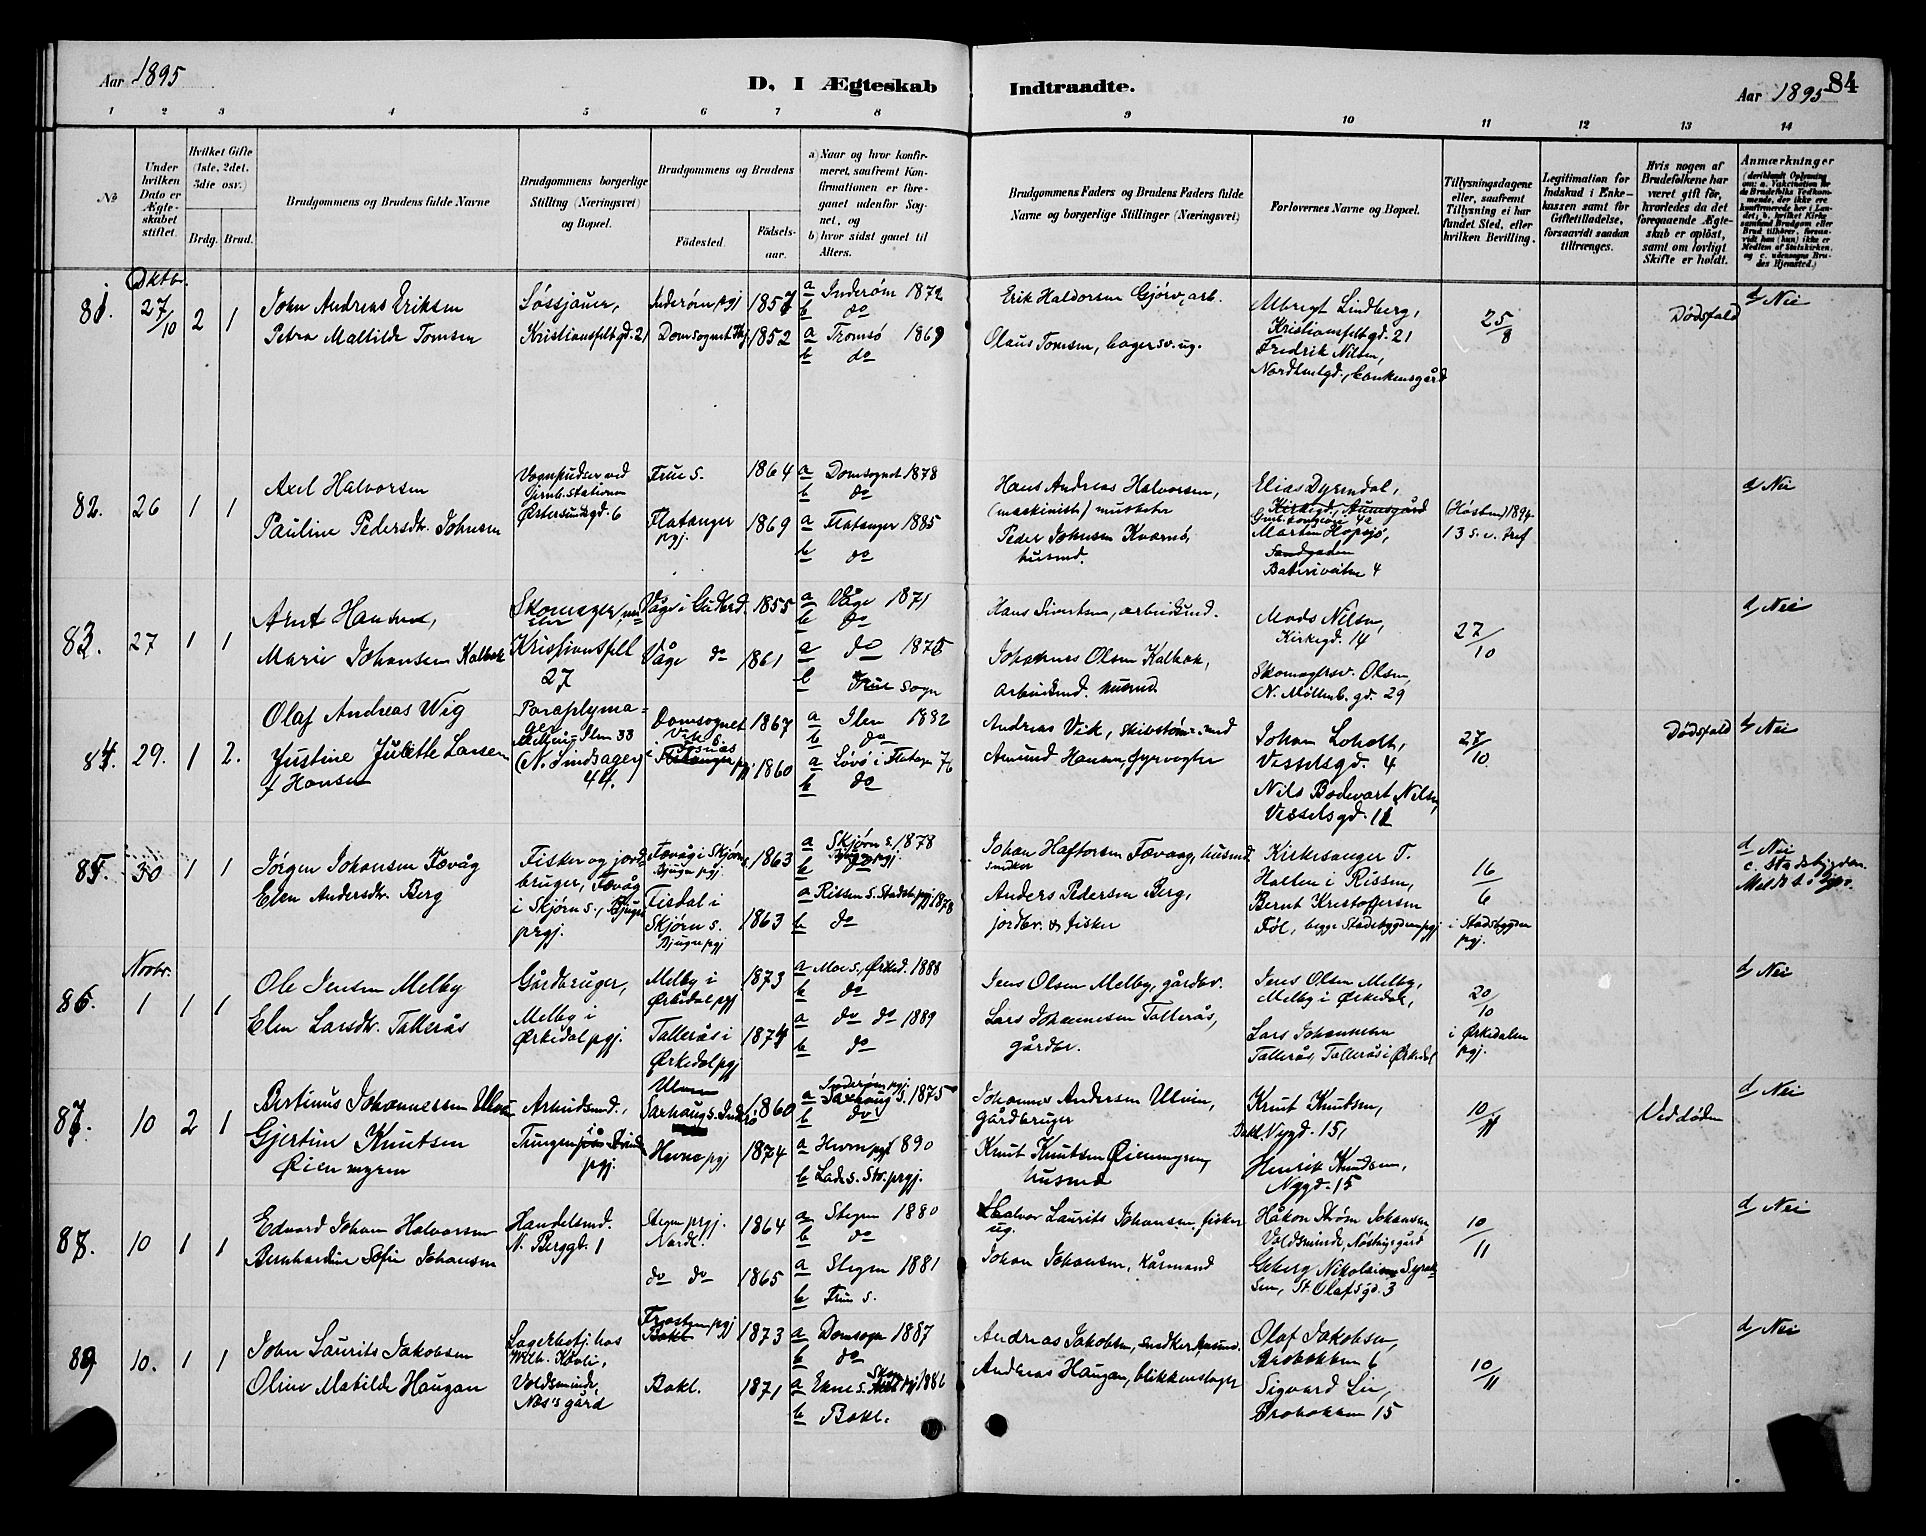 Aar 1895
D, I Ægteskab Indtraadte.
Aar 1895 84
1 2 3 4 5 6 7 8 9 10 11 12 13 14
No
Under hvilken Dato er Ægteskabet stiftet.
Hvilket Gifte (1ste, 2det, 3die osv.)
Brdg. Brud.
Brudgommens og Brudens fulde Navne
Brudgommens borgerlige Stilling (Næringsvei) og Bopæl.
Brudgommens og Brudens
Födested.
Födselsaar.
a) Naar og hvor konfirmeret, saafremt Konfirmationen er foregaaet udenfor Sognet, og
b) hvor sidst gaaet til Alters.
Brudgommens Faders og Brudens Faders fulde Navne og borgerlige Stillinger (Næringsvei)
Forlovernes Navne og Bopæl.
Tillysningsdagene eller, saafremt Tillysning ei har fundet Sted, efter hvilken Bevilling.
Legitimation for Indskud i Enkekassen samt for Giftetilladelse, forsaavidt saadan tiltrænges.
Hvis nogen af Brudefolkene har været gift før, hvorledes da det foregaaende Ægteskab er oplöst, samt om lovligt Skifte er holdt.
Anmærkninger
Oktbr.
81. 27/10 2 1
John Andreas Eriksen
Petra Mathilde Tomsen
Løssjauer,
Kristiansfeltgd. 21
Inderøm pgj 1857
Domsognet Thj 1852
a Inderøm 1872
b do
a Tromsö 1869
b do
Erik Haldorsen Gjörv, arb.
Olaus Tomsen, bagersv. ug.
Albregt Lindberg,
Kristiansfeltgd. 21
Fredrik Nilsen,
25/8
Dødsfald
d Nei
82. 26 1 1
Axel Halvorsen
Pauline Pedersdr. Johnsen
Vognpudser ved
Jernb. stationen
Østersundsgd. 6
Frue s. 1864
Flatanger pgj. 1869
a Domsognet 1878
b do
a Flatanger 1885
b do
Hans Andreas Halvorsen,
(maskinist)
Peder Johnsen Kvernö,
husmd.
Elias Dyrendal,
Martin Hopsjö,
Sandgaden
Bakeriveiten 4
(Høsten) 1894
d Nei
83. 27 1 1
Arnt Hansen,
Marie Johansen Kalbak
Skomager,
Kristiansfelt
27
Våge i Gudbrd. 1855
Våge do 1861
a Våge 1871
b do
a do 1875
b Frue sogn
Hans Sivertsen, arbeidsmd.
Johannes Olsen Kalbak,
arbeidsmd. husmd.
Mads Nilsen,
Kirkegd. 14
Skomagersv. Olsen,
N. Möllenb. gd. 29
27/10
d Nei
84. 29. 1 2.
Olaf Andreas Wig
Justine Juliette Larsen
f Hansen
Paraplymager
Ilen 33
44.
Domsognet 1867
1860
a Ilen 1882
b do
a Lövö i Flatanger 76
b do
Andreas Vik, skibstømmermd
Amund Hansen, fyrvogter
Johan Loholt,
Vesselsgd. 4
Nils Bodevart Nilsen,
Vesselsgd. 12
27/10
Dødsfald
d Nei
85. 30 1 1
Jörgen Johansen Fævåg
Elen Andersdr. Berg
Fisker og jordbruger, Fævåg
i Skjörn s., Bjugn
prgj.
Fævåg i Skjörn s 1863
Bjugn pgj
Fisdal i
Skjörn s. 1863
Bjugn pgj
a Skjörn s. 1878
b do
a Rissen s. Stadsb. pgj. 1878
b do
Johan Haftorsen Fævaag, husmd
snedker
Anders Pedersen Berg,
jordbr. & fisker
Kirkesanger T.
Halten i Rissen,
Bernt Kristoffersen
Föl, begge Stadsbygden pgj
16/6
i Stadsbygden
pgj.
d Nei
c. Stadsbygden
Novbr.
86. 1 1 1
Ole Jensen Melby
Elen Larsdr. Tallerås
Gårdbruger,
Melby i
Ørkedal pgj.
Melby i 1873
Ørkedal pgj
Tallerås i 1874
Ørkedal pgj
a Moe s. Ørked. 1888
b do
a do do 1889
b do
Jens Olsen Melby, gårdbr.
Lars Johannesen Tallerås,
gårdbr.
Jens Olsen Melby,
Melby i Ørkedal,
Lars Johannesen
Tallerås, Tallerås i Ørkedal
20/10
i Ørkedalen
pgj.
d Nei
87. 10 2 1
Bertinus Johannessen Ulven
Gjertine Knutsen
Øien myren
Arbeidsmd.,
Trungen i Strinde
pgj.
Ulven
Saxhaug s. Inderö 1860
Hevne pgj 1874
a Inderøm pgj.
Saxhaug s. 1875
b do
a Hevne pgj 1890
b Lade s. Str. prgj.
Johannes Andersen Ulven,
gårdbruger
Knut Knutsen Øienmyren,
husmd
Knut Knutsen,
Bakl. Nygd. 15,
Henrik Knudsen,
Nygd. 15
10/11
Ved döden
d Nei
88. 10 1 1
Edvard Johan Halvorsen
Bernhardine Sofie Johansen
Handelsmd.
N. Berggd. 1
Stegen prgj. 1864
Nordl.
do do 1865
a Stegen 1880
b do
a Stegen 1881
b Frue s.
Halvor Laurits Johansen, fisker
ug.
Johan Johansen, Kårmand
Håkon Strøm Johansen,
Voldsminde, Nöstvigsgård
Geberg Nikolaisen
St. Olafsgd. 3
10/11
d Nei
89 10. 1 1
John Laurits Jakobsen
Oline Matilde Haugan
Lagerbetj. hos
Wilh. Kövli,
Voldsminde,
Næs's gård
Frosten pgj
Bakl 1873
Bakl. 1871
a Domsogn 1887
b do
a Ekne s. Skogn pgj 1886
b Bakl.
Andreas Jakobsen, snedker, husmd.
Andreas Haugan, blikkenslager
Olaf Jakobsen,
Brobakken 6
Sigvard Lie,
Brobakken 15
10/11
d Nei